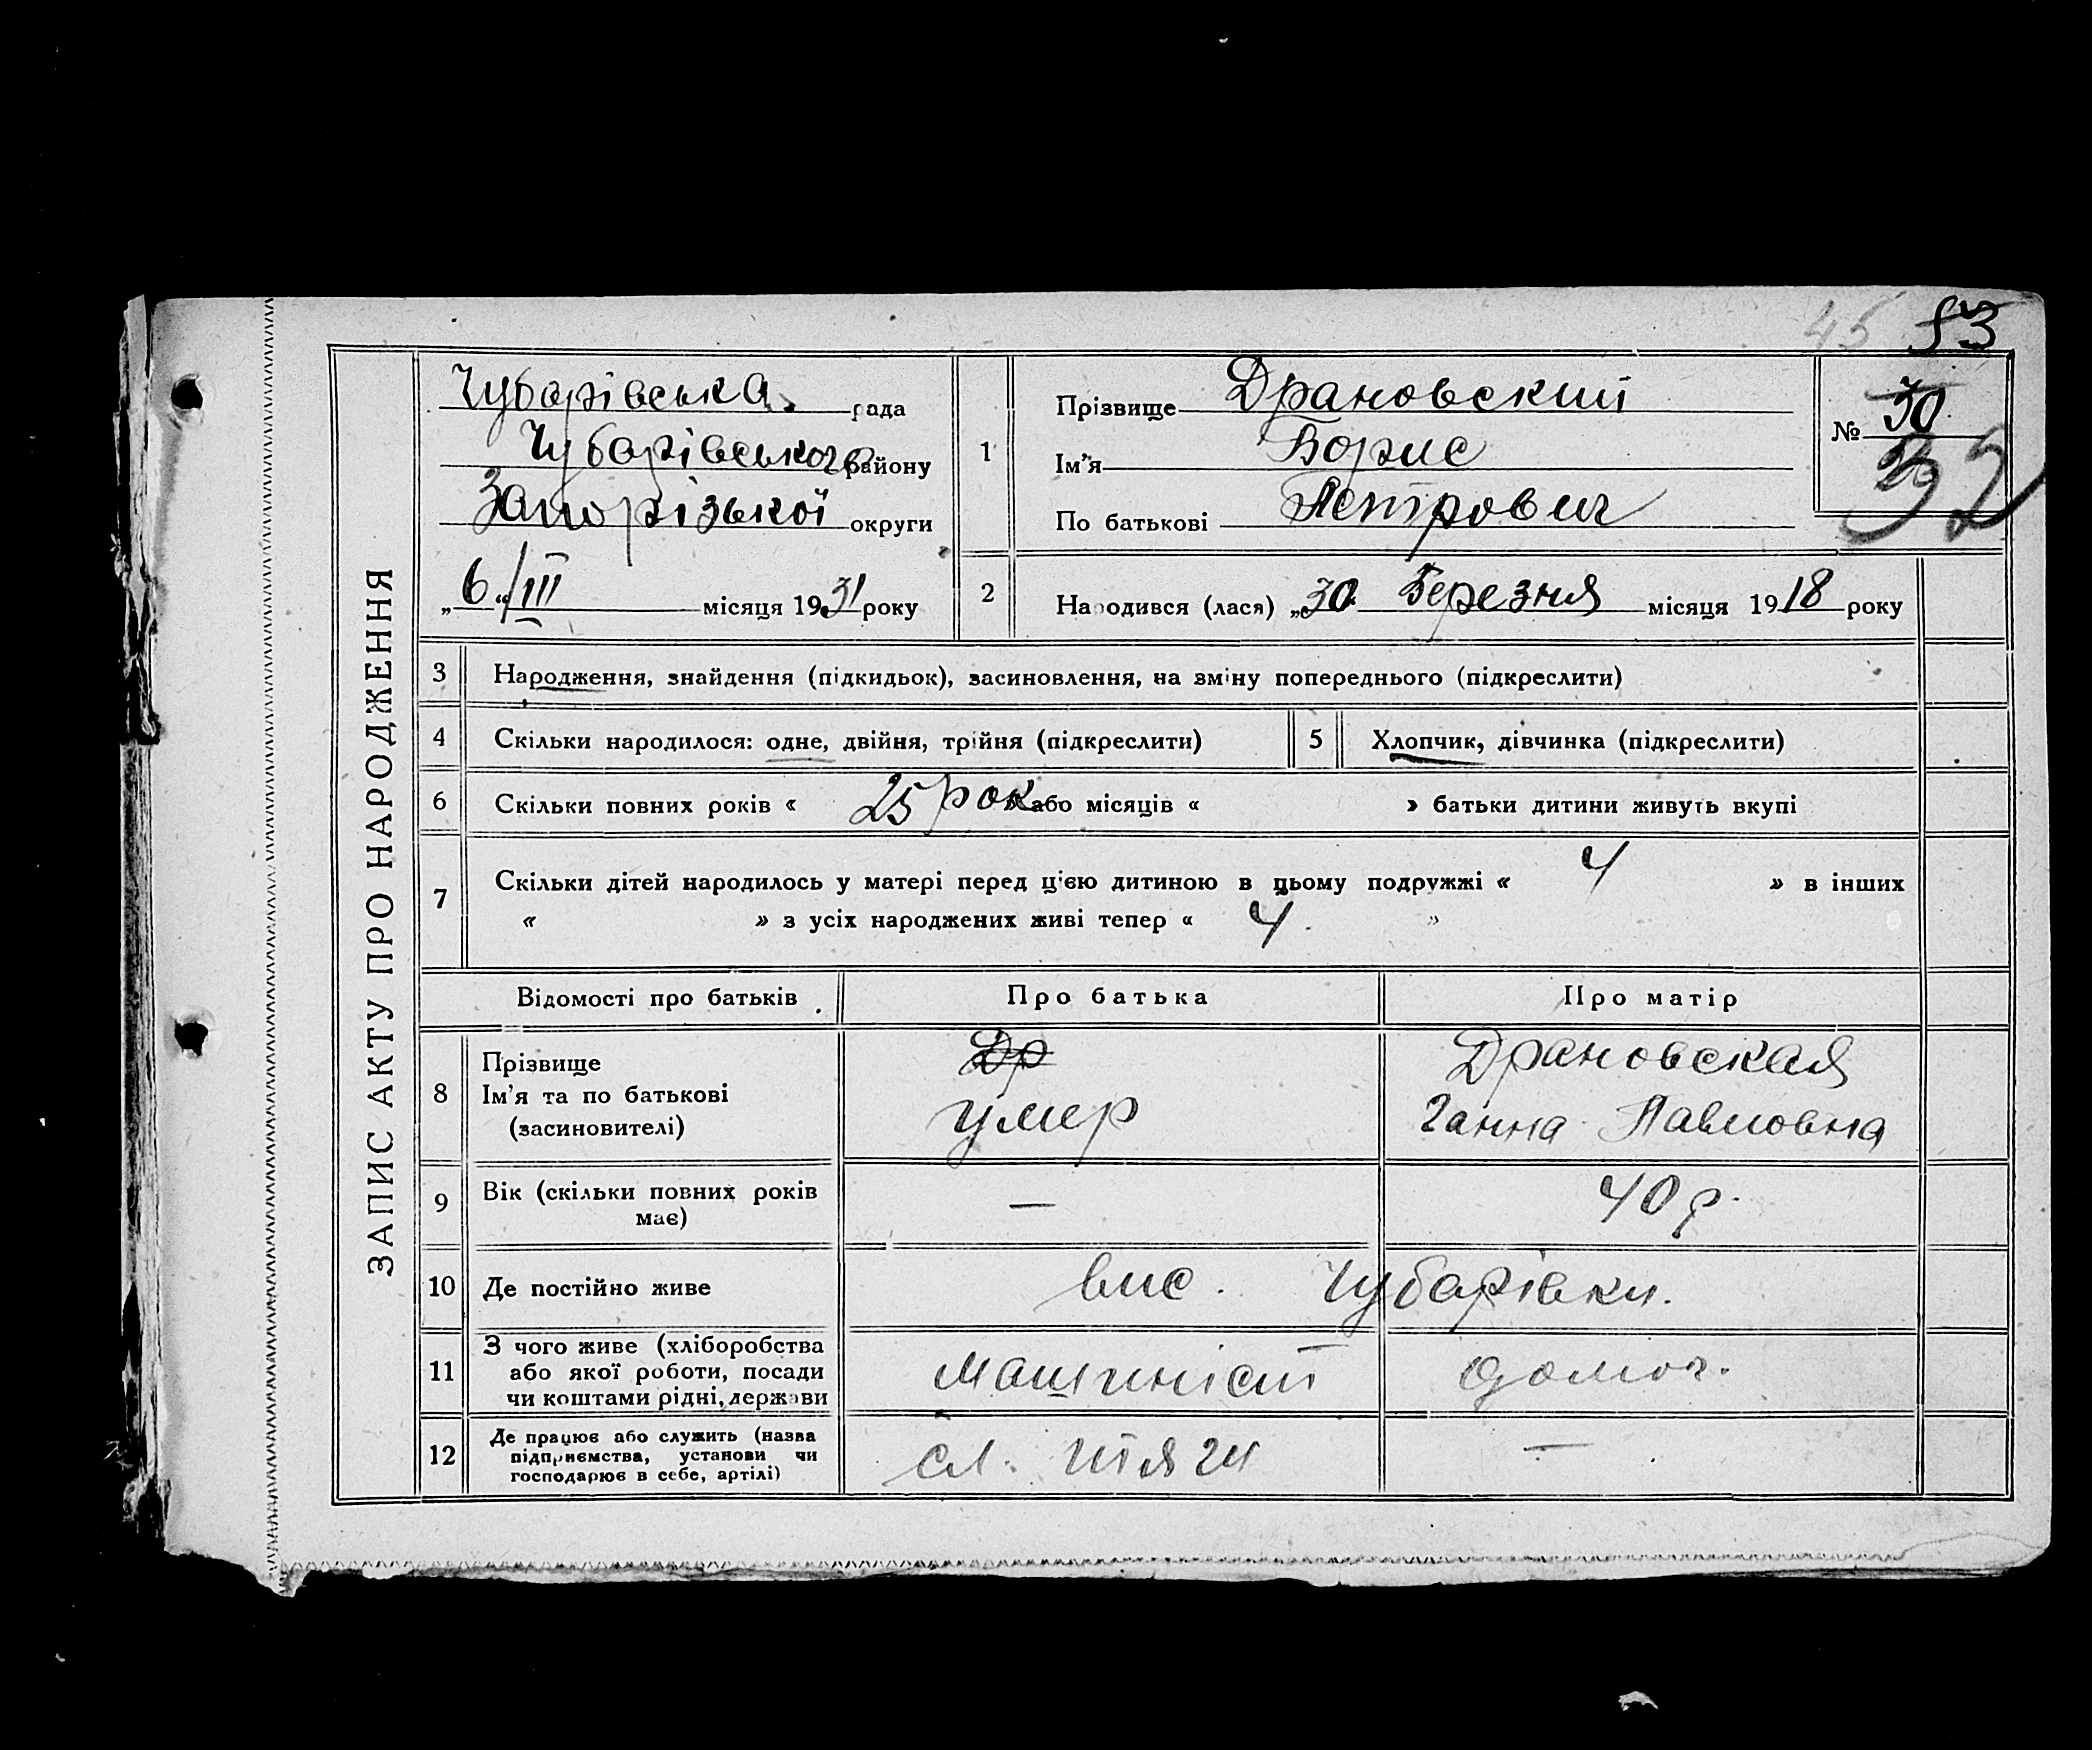 45 53
ЗАПИС АКТУ ПРО НАРОДЖЕННЯ
Чубарівська рада
Чубарівського району
Запорізької округи
„6“/III місяця 1931 року
1
Прізвище Драновский
Ім’я Борис
По батькові Петрович
№ 30
32
2
Народився (лася) „30 Березня місяця 1918 року
3 Народження, знайдення (підкидьок), засиновлення, на зміну попереднього (підкреслити)
4 Скільки народилося: одне, двійня, трійня (підкреслити) 5 Хлопчик, дівчинка (підкреслити)
6 Скільки повних років « 25 рок » або місяців « » батьки дитини живуть вкупі
7 Скільки дітей народилось у матері перед цією дитиною в цьому подружжі « 4 » в інших
« » з усіх народжених живі тепер « 4. »
Відомості про батьків Про батька Про матір
8 Прізвище
Ім’я та по батькові
(засиновителі)
Др
умер
Драновская
Ганна Павловна
9 Вік (скільки повних років
має)
— 40 р.
10 Де постійно живе вис. Чубарівки.
11 З чого живе (хліборобства
або якої роботи, посади
чи коштами рідні, держави
машиніст домог.
12 Де працює або служить (назва
підприємства, установи чи
господарює в себе, артілі)
сл. тяги —